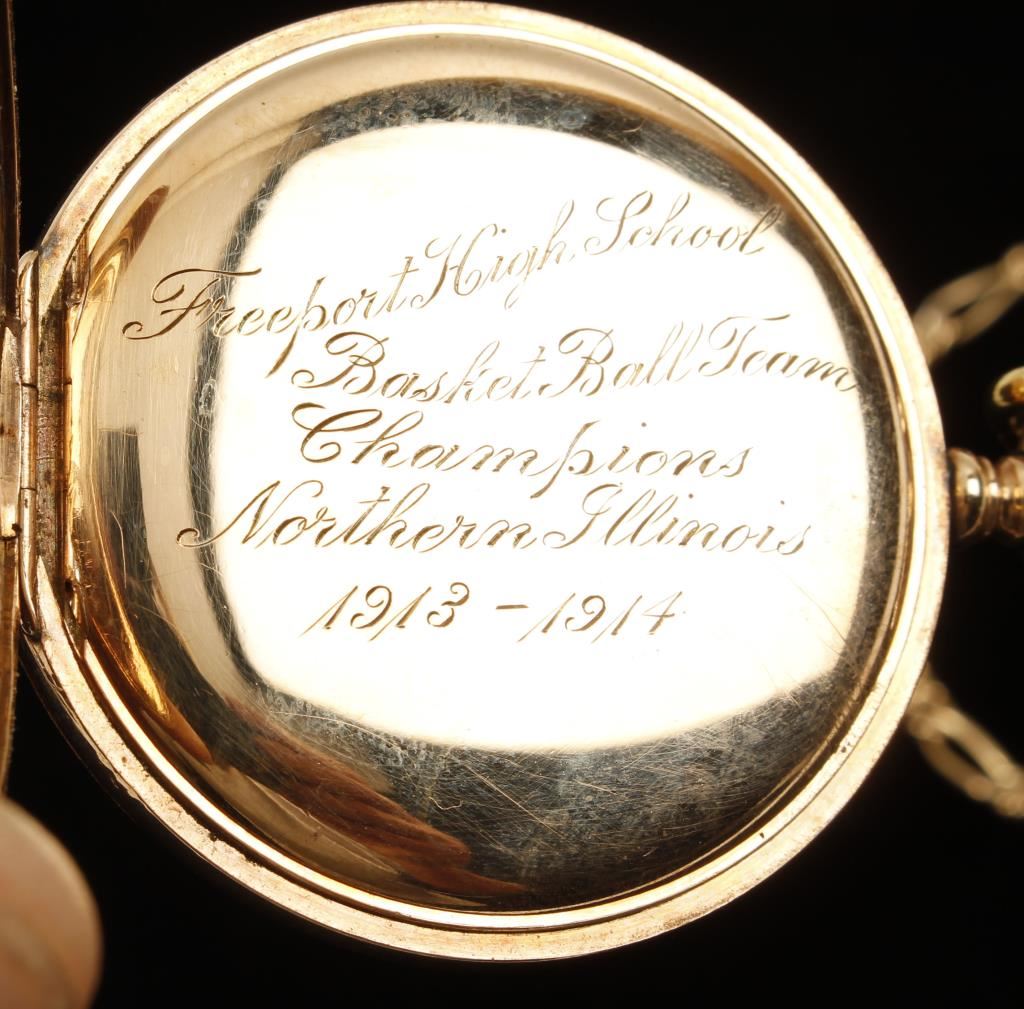 Freeport High School
Basket Ball Team
Champions
Northern Illinois
1913 - 1914